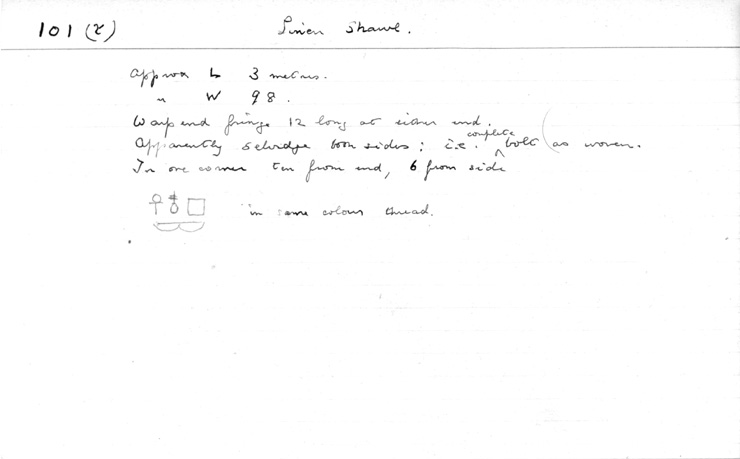 101 (τ) Linen Shawl.
Approx L 3 metres.
" W 98.
Warp end fringe 12 long at either end.
Apparently selvedge both sides; i.e. complete bolt (as woven.
In one corner ten from end, 6 from side
in same colour thread.